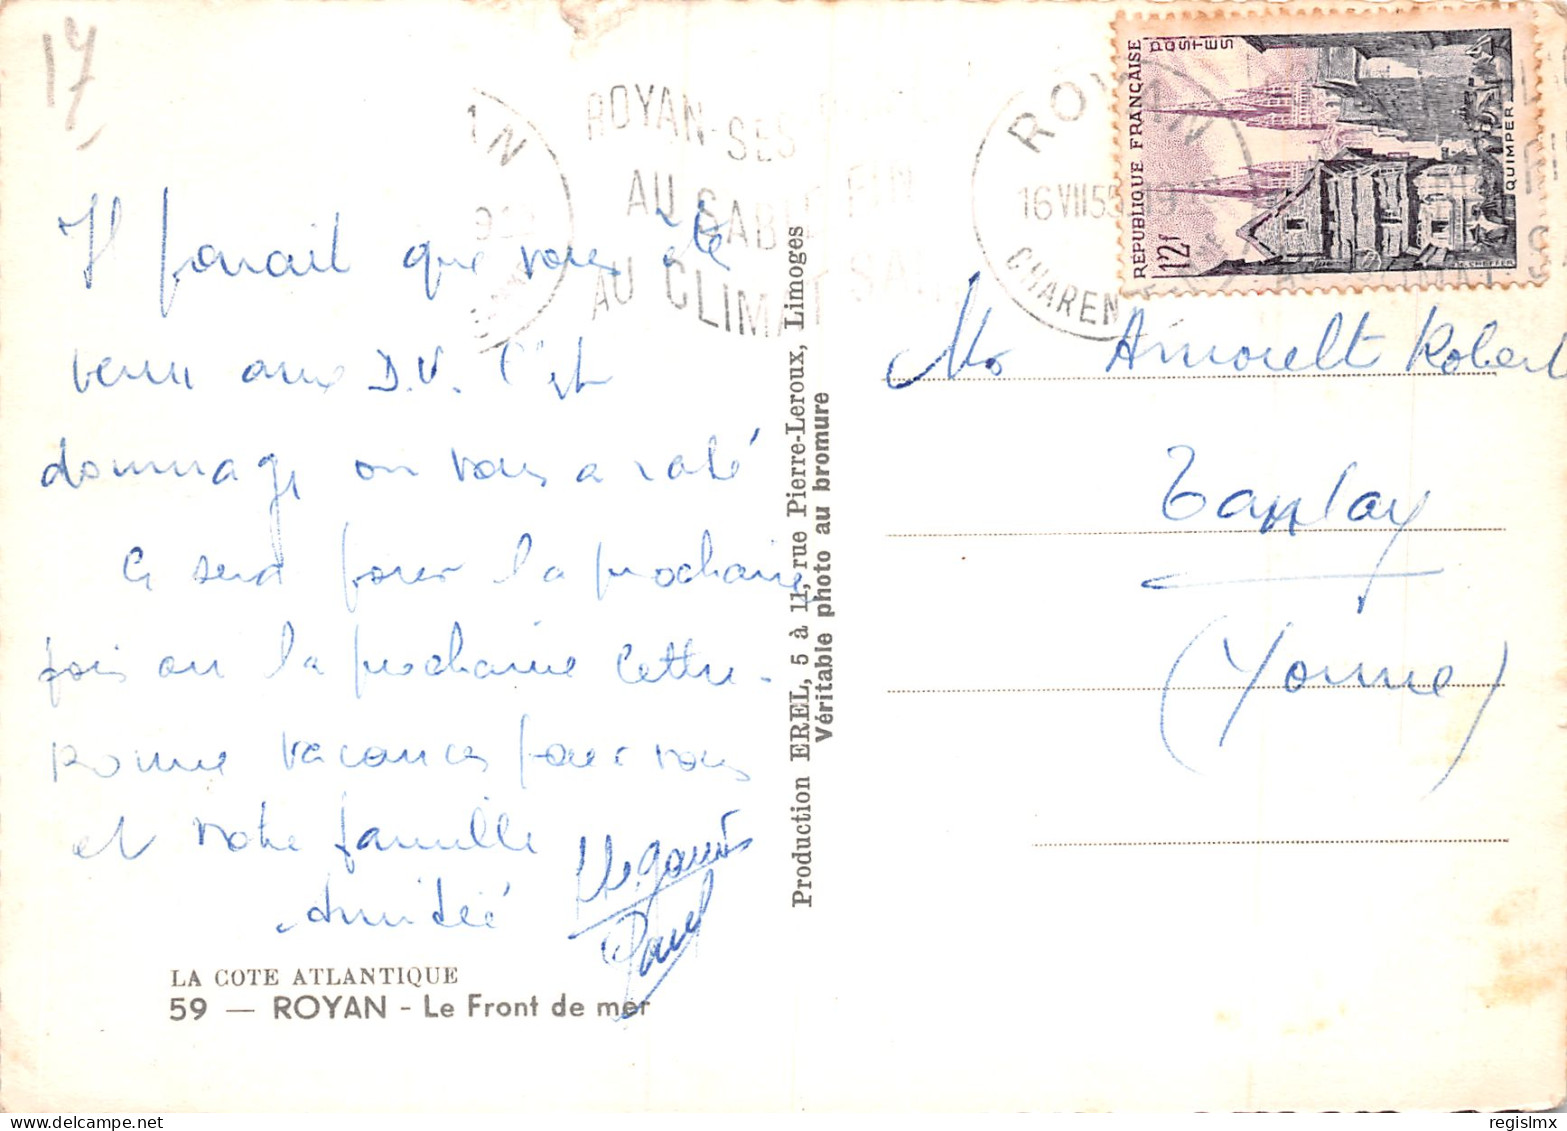 17
ROYAN-SES
AU SABLE FIN
AU CLIMAT SALIN
ROYAN
16 VII 55
CHARENTE
REPUBLIQUE FRANÇAISE
POSTES
12F
QUIMPER
Il parait que vous été
venu aux D.V. C'est
dommage on vous a raté
Ce sera pour la prochaine
fois ou la prochaine lettre.
Bonne vacances pour vous
et votre famille
Amitié
Paul
LA COTE ATLANTIQUE
59 — ROYAN - Le Front de mer
Production EREL, 5 à 11, rue Pierre-Leroux, Limoges
Véritable photo au bromure
Mr Amorelt Robert
Tapplay
(Yonne)
© regislmx